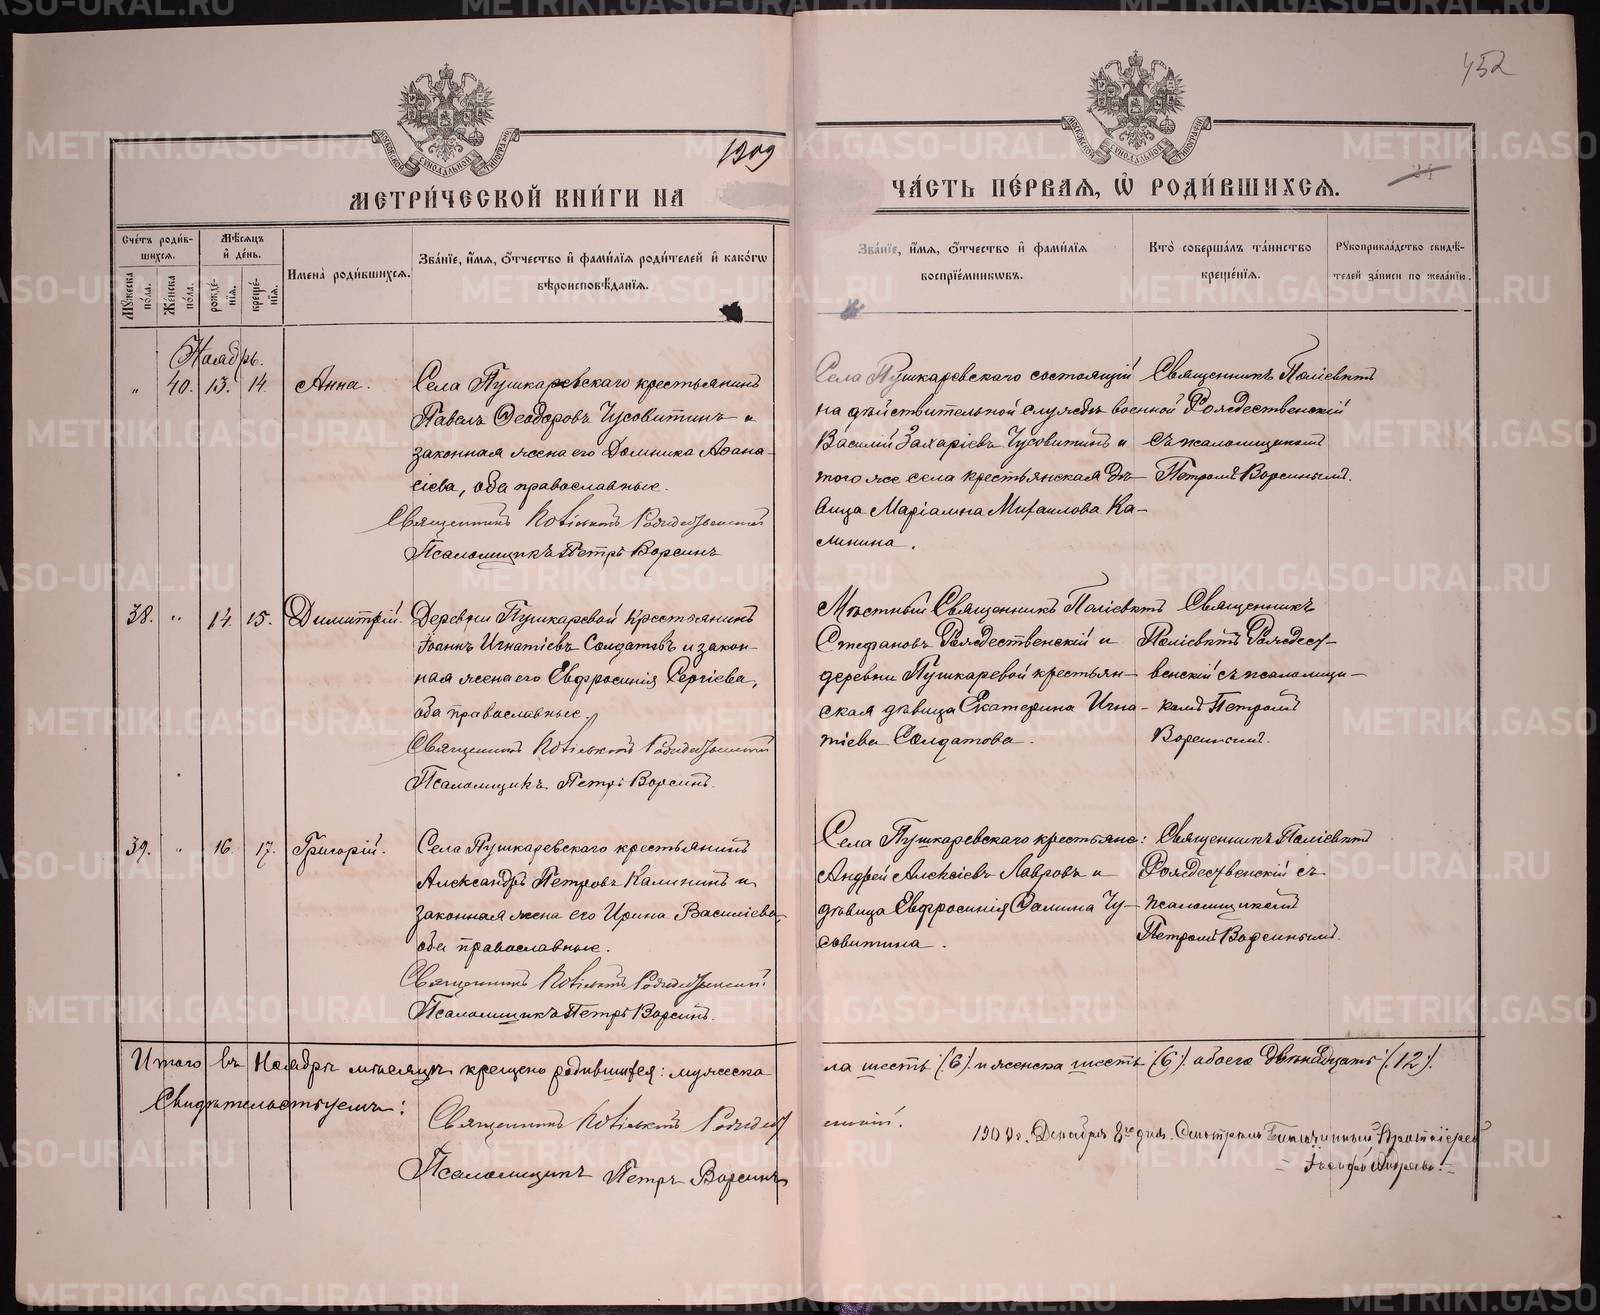 452
1909
МЕТРИ́ЧЕСКОЙ КНИ́ГИ НА
ЧА́СТЬ ПЕ́РВАЯ, Ѡ РОДИ́ВШИХСЯ.
Сче́тъ роди́вшихся.
Му́жеска по́ла.
Же́нска по́ла.
Мѣ́сяцъ и́ де́нь.
рожде́нія.
креще́нія.
Имена̀ роди́вшихся.
Зва́нїе, и́мя, о́тчество и́ фами́лїя роди́телей и́ како́гѡ вѣроисповѣ́данїя.
Зва́нїе, и́мя, о́тчество и́ фами́лїя воспрїе́мниковъ.
Кто̀ соверша́лъ та́инство креще́нїя.
Рукоприкла́дство свидѣ́телей за́писи по жела́нію.
Ноябрь.
" 40. 13. 14. Анна.
Села Пушкаревскаго крестьянинъ
Павелъ Ѳеодоровъ Чусовитинъ и
законная жена его Домника Аѳана-
сіева, оба православные.
Священникъ Поліевктъ Рождественскій
Псаломщикъ Петръ Ворсинъ
Села Пушкаревскаго состоящій
на дѣйствительной службѣ военной
Василій Захаріевъ Чусовитинъ и
того же села крестьянская дѣ-
вица Маріамна Михаилова Ка-
линина.
Священникъ Поліевктъ
Рождественскій
съ псаломщикомъ
Петромъ Ворсинымъ.
38. " 14 15. Димитрій.
Деревни Пушкаревой крестьянинъ
Іоаннъ Игнатіевъ Солдатовъ и закон-
ная жена его Евфросинія Сергіева,
оба православные.
Священникъ Поліевктъ Рождественскій
Псаломщикъ Петръ Ворсинъ.
Мѣстный Священникъ Поліевктъ
Стефановъ Рождественскій и
деревни Пушкаревой крестьян-
ская дѣвица Екатерина Игна-
тіева Солдатова.
Священникъ
Поліевктъ Рождест-
венскій съ псаломщи-
комъ Петромъ
Ворсинымъ.
39. " 16. 17. Григорій.
Села Пушкаревскаго крестьянинъ
Александръ Петровъ Калининъ и
законная жена его Ирина Василіева,
оба православные.
Священникъ Поліевктъ Рождественскій.
Псаломщикъ Петръ Ворсинъ.
Села Пушкаревскаго крестьяне:
Андрей Алексіевъ Лавровъ и
дѣвица Евфросинія Ѳомина Чу-
совитина.
Священникъ Поліевктъ
Рождественскій съ
псаломщикомъ
Петромъ Ворсинымъ.
Итого въ Ноябрѣ мѣсяцѣ крещено родившихся: мужеска
ла шесть (.6.) и женска шесть (.6.) обоего двѣнадцать (.12.).
Свидѣтельствуемъ:
Священникъ Поліевктъ Рождест
скій.
Псаломщикъ Петръ Ворсинъ
1909г. Декабря 8го дня. Смотрѣлъ Благочинный Протоіерей
METRIKI.GASO-URAL.RU